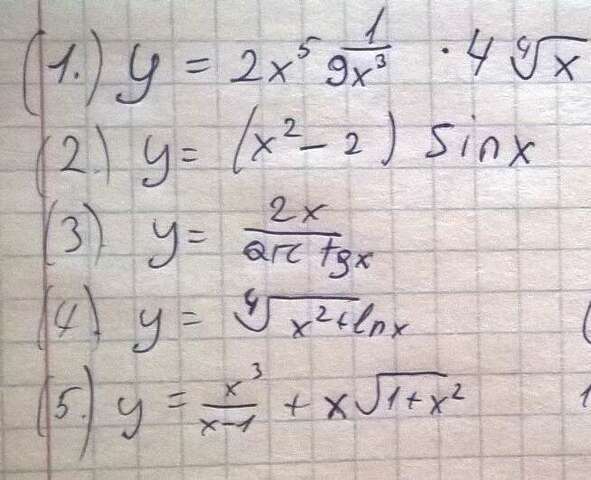 (1.) y = 2x⁵ 1/9x³ · 4 ⁴√x
(2.) y = (x² - 2) sin x
(3) y = 2x/arc tg x
(4) y = ⁴√x² + ln x
(5.) y = x³/x-1 + x√1+x²